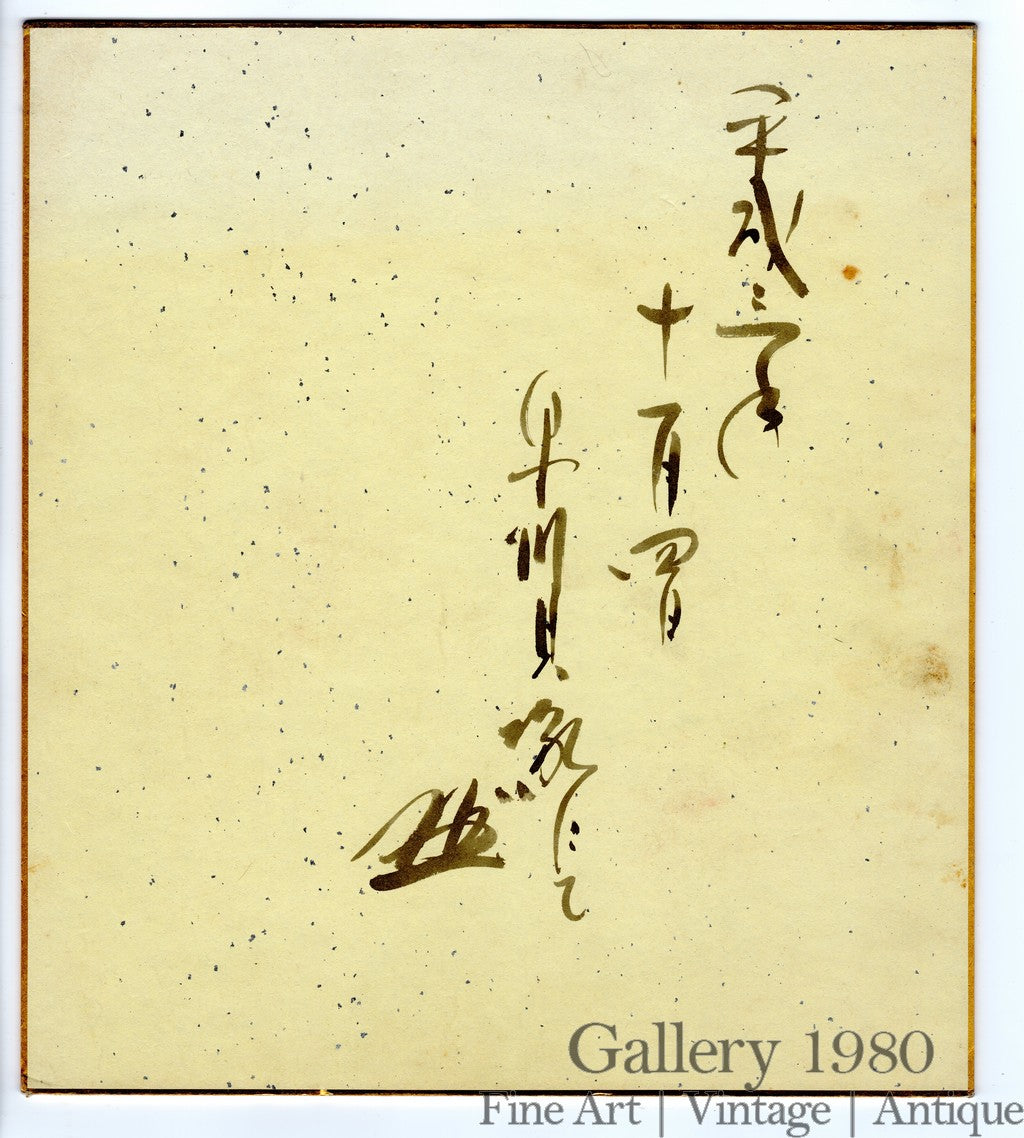 平成三年
十一月四日
賀家にて
Gallery 1980
Fine Art | Vintage | Antique